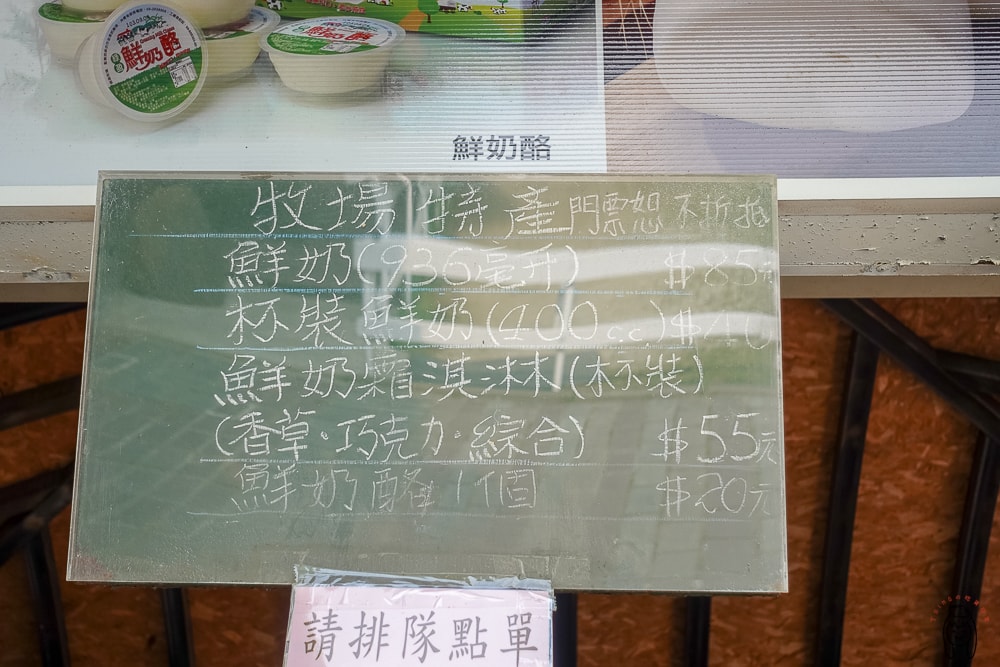 鮮奶酪
鮮奶酪
牧場特產門票恕不折抵
鮮奶(936毫升) $85元
杯裝鮮奶(400c.c.)$40
鮮奶霜淇淋(杯裝)
(香草·巧克力·綜合) $55元
鮮奶酪1個 $20元
請排隊點單